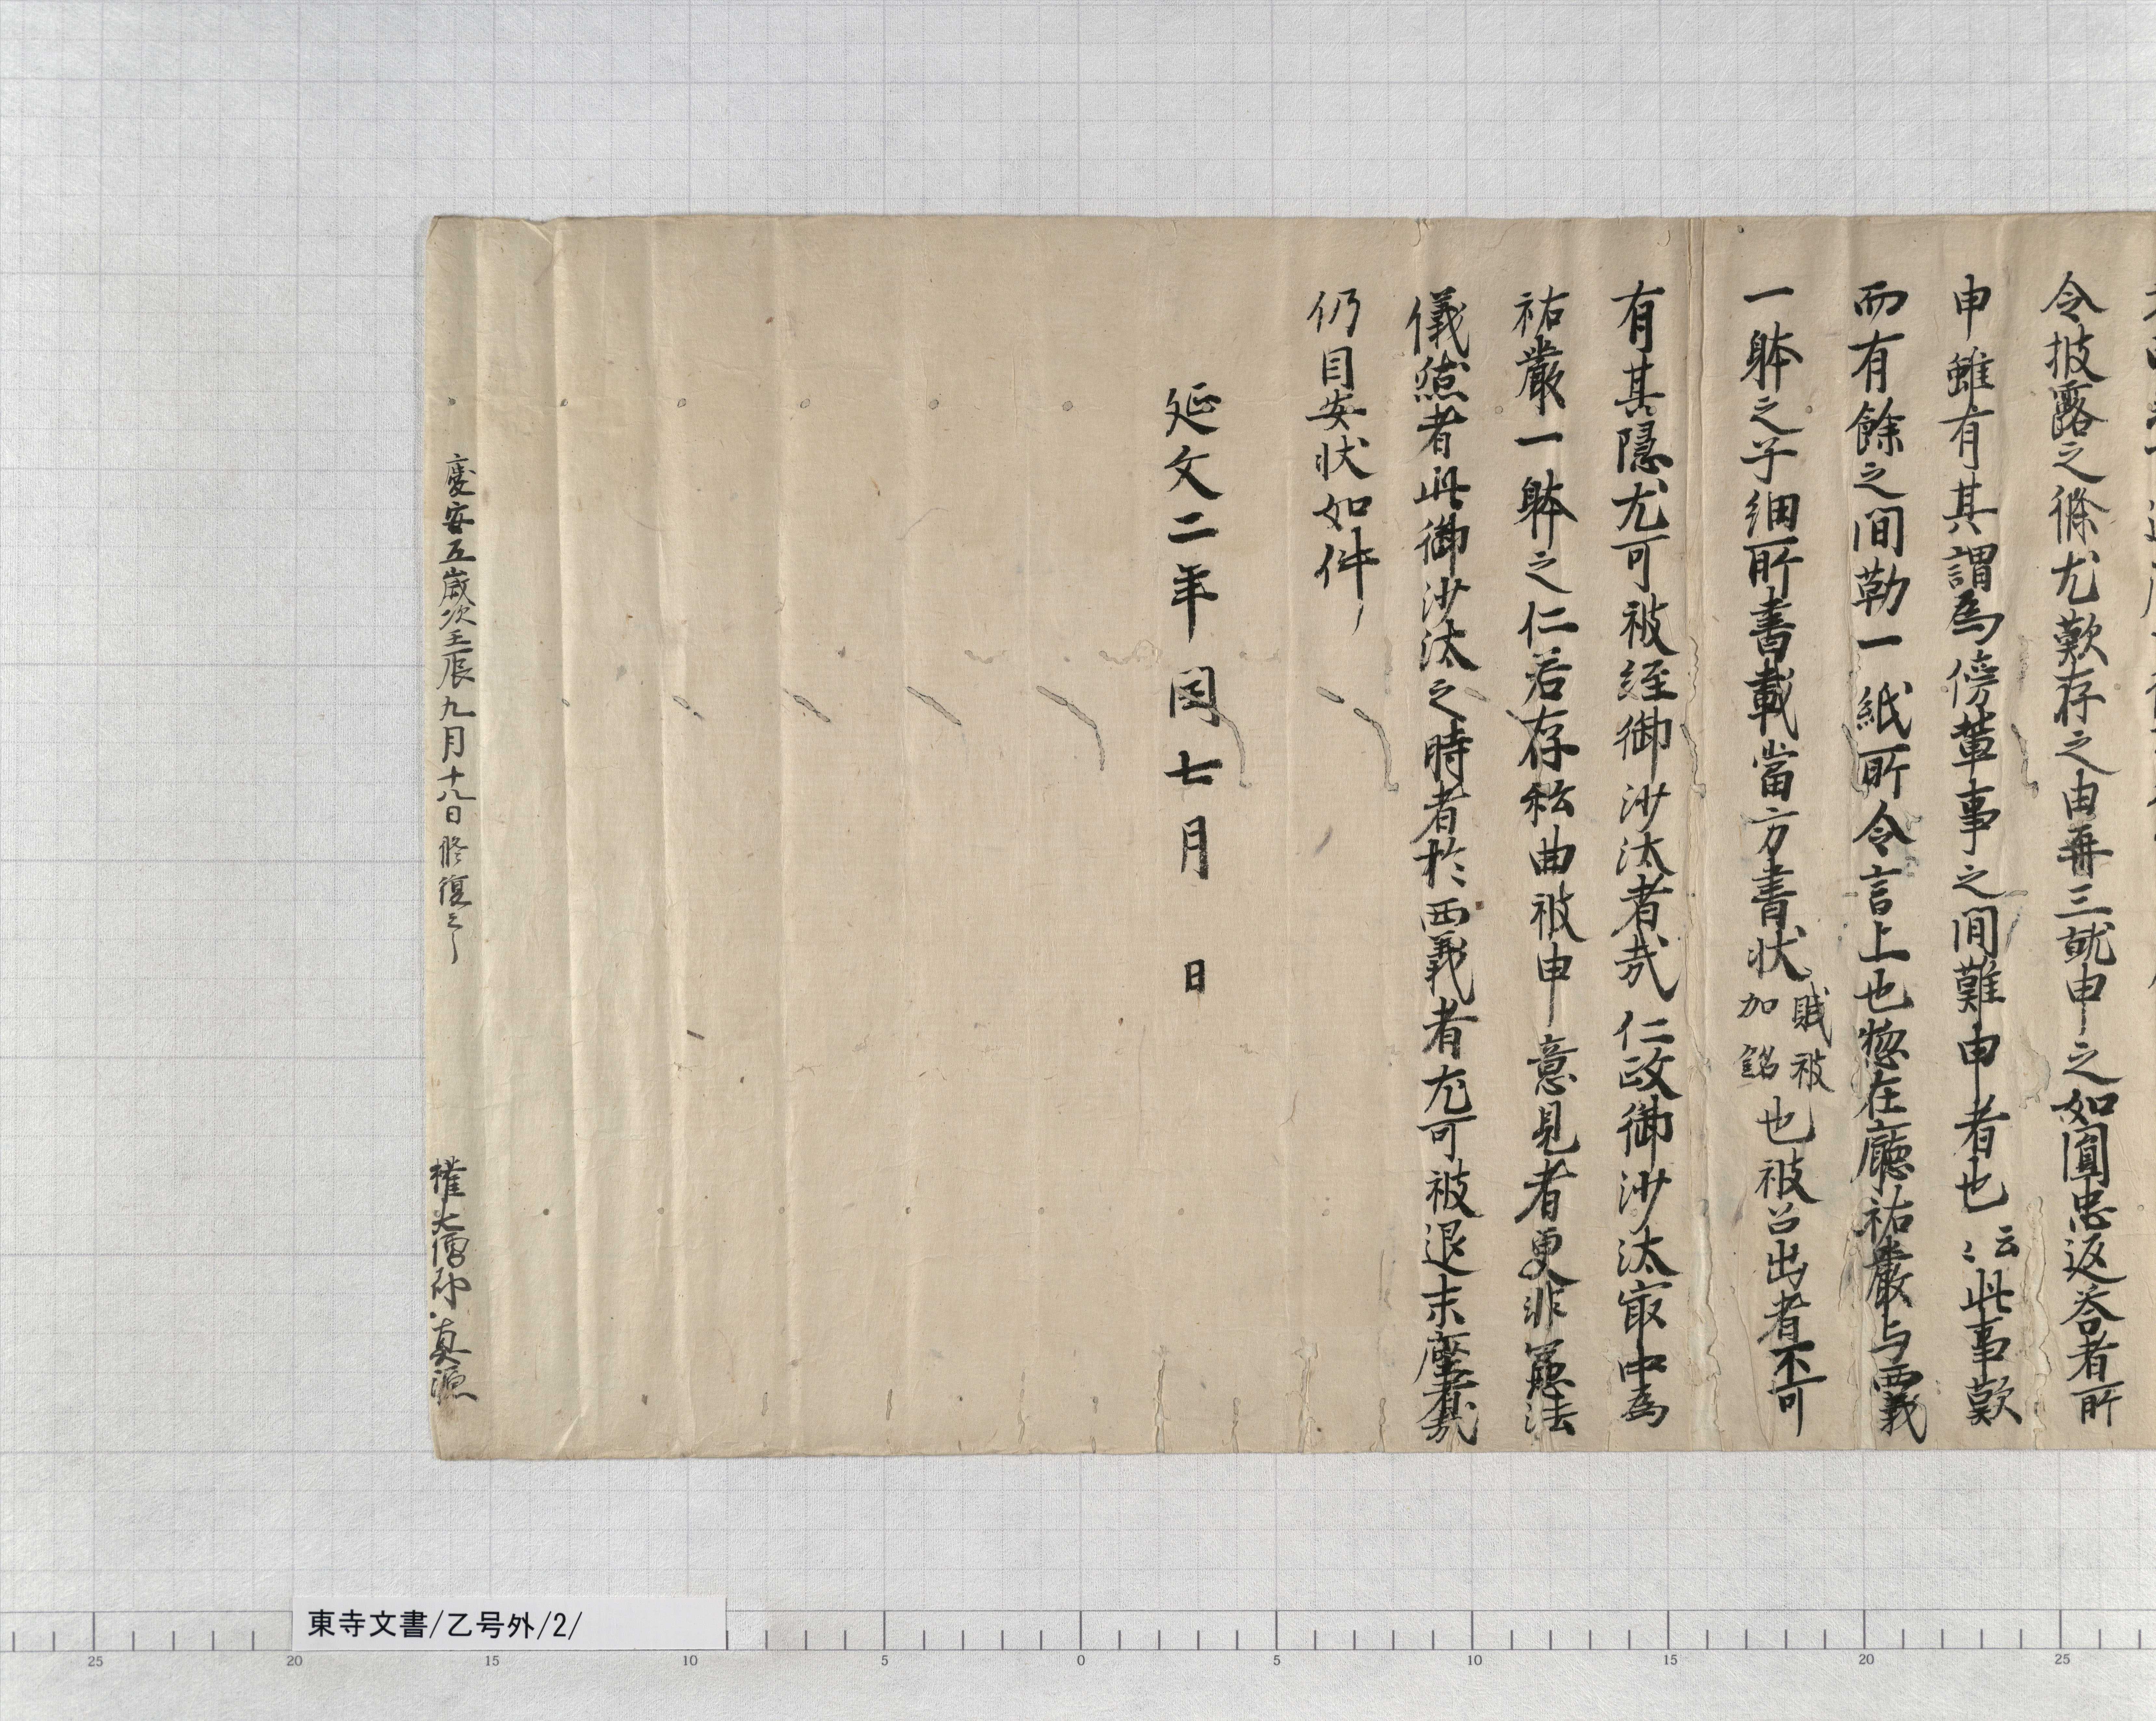 令披露之條尤歎存之由再三就申之如圓忠返答者所
申雖有其謂為傍輩事之間難申者也云〻此事歎
而有餘之間勒一紙所令言上也惣在廳祐嚴与西義
一躰之子細所書載當方書状賦被加銘也被召出者不可
有其隠尤可被經御沙汰者哉仁政御沙汰㝡中為
祐嚴一躰之仁若存私曲被申意見者更非憲法
儀然者此御沙汰之時者於西義者尤可被退末座者哉
仍目安状如件
延文二年閏七月 日
慶安五歳次壬辰九月十八日修復之
權大僧都真源
東寺文書/乙号外/2/
25 20 15 10 5 0 5 10 15 20 25